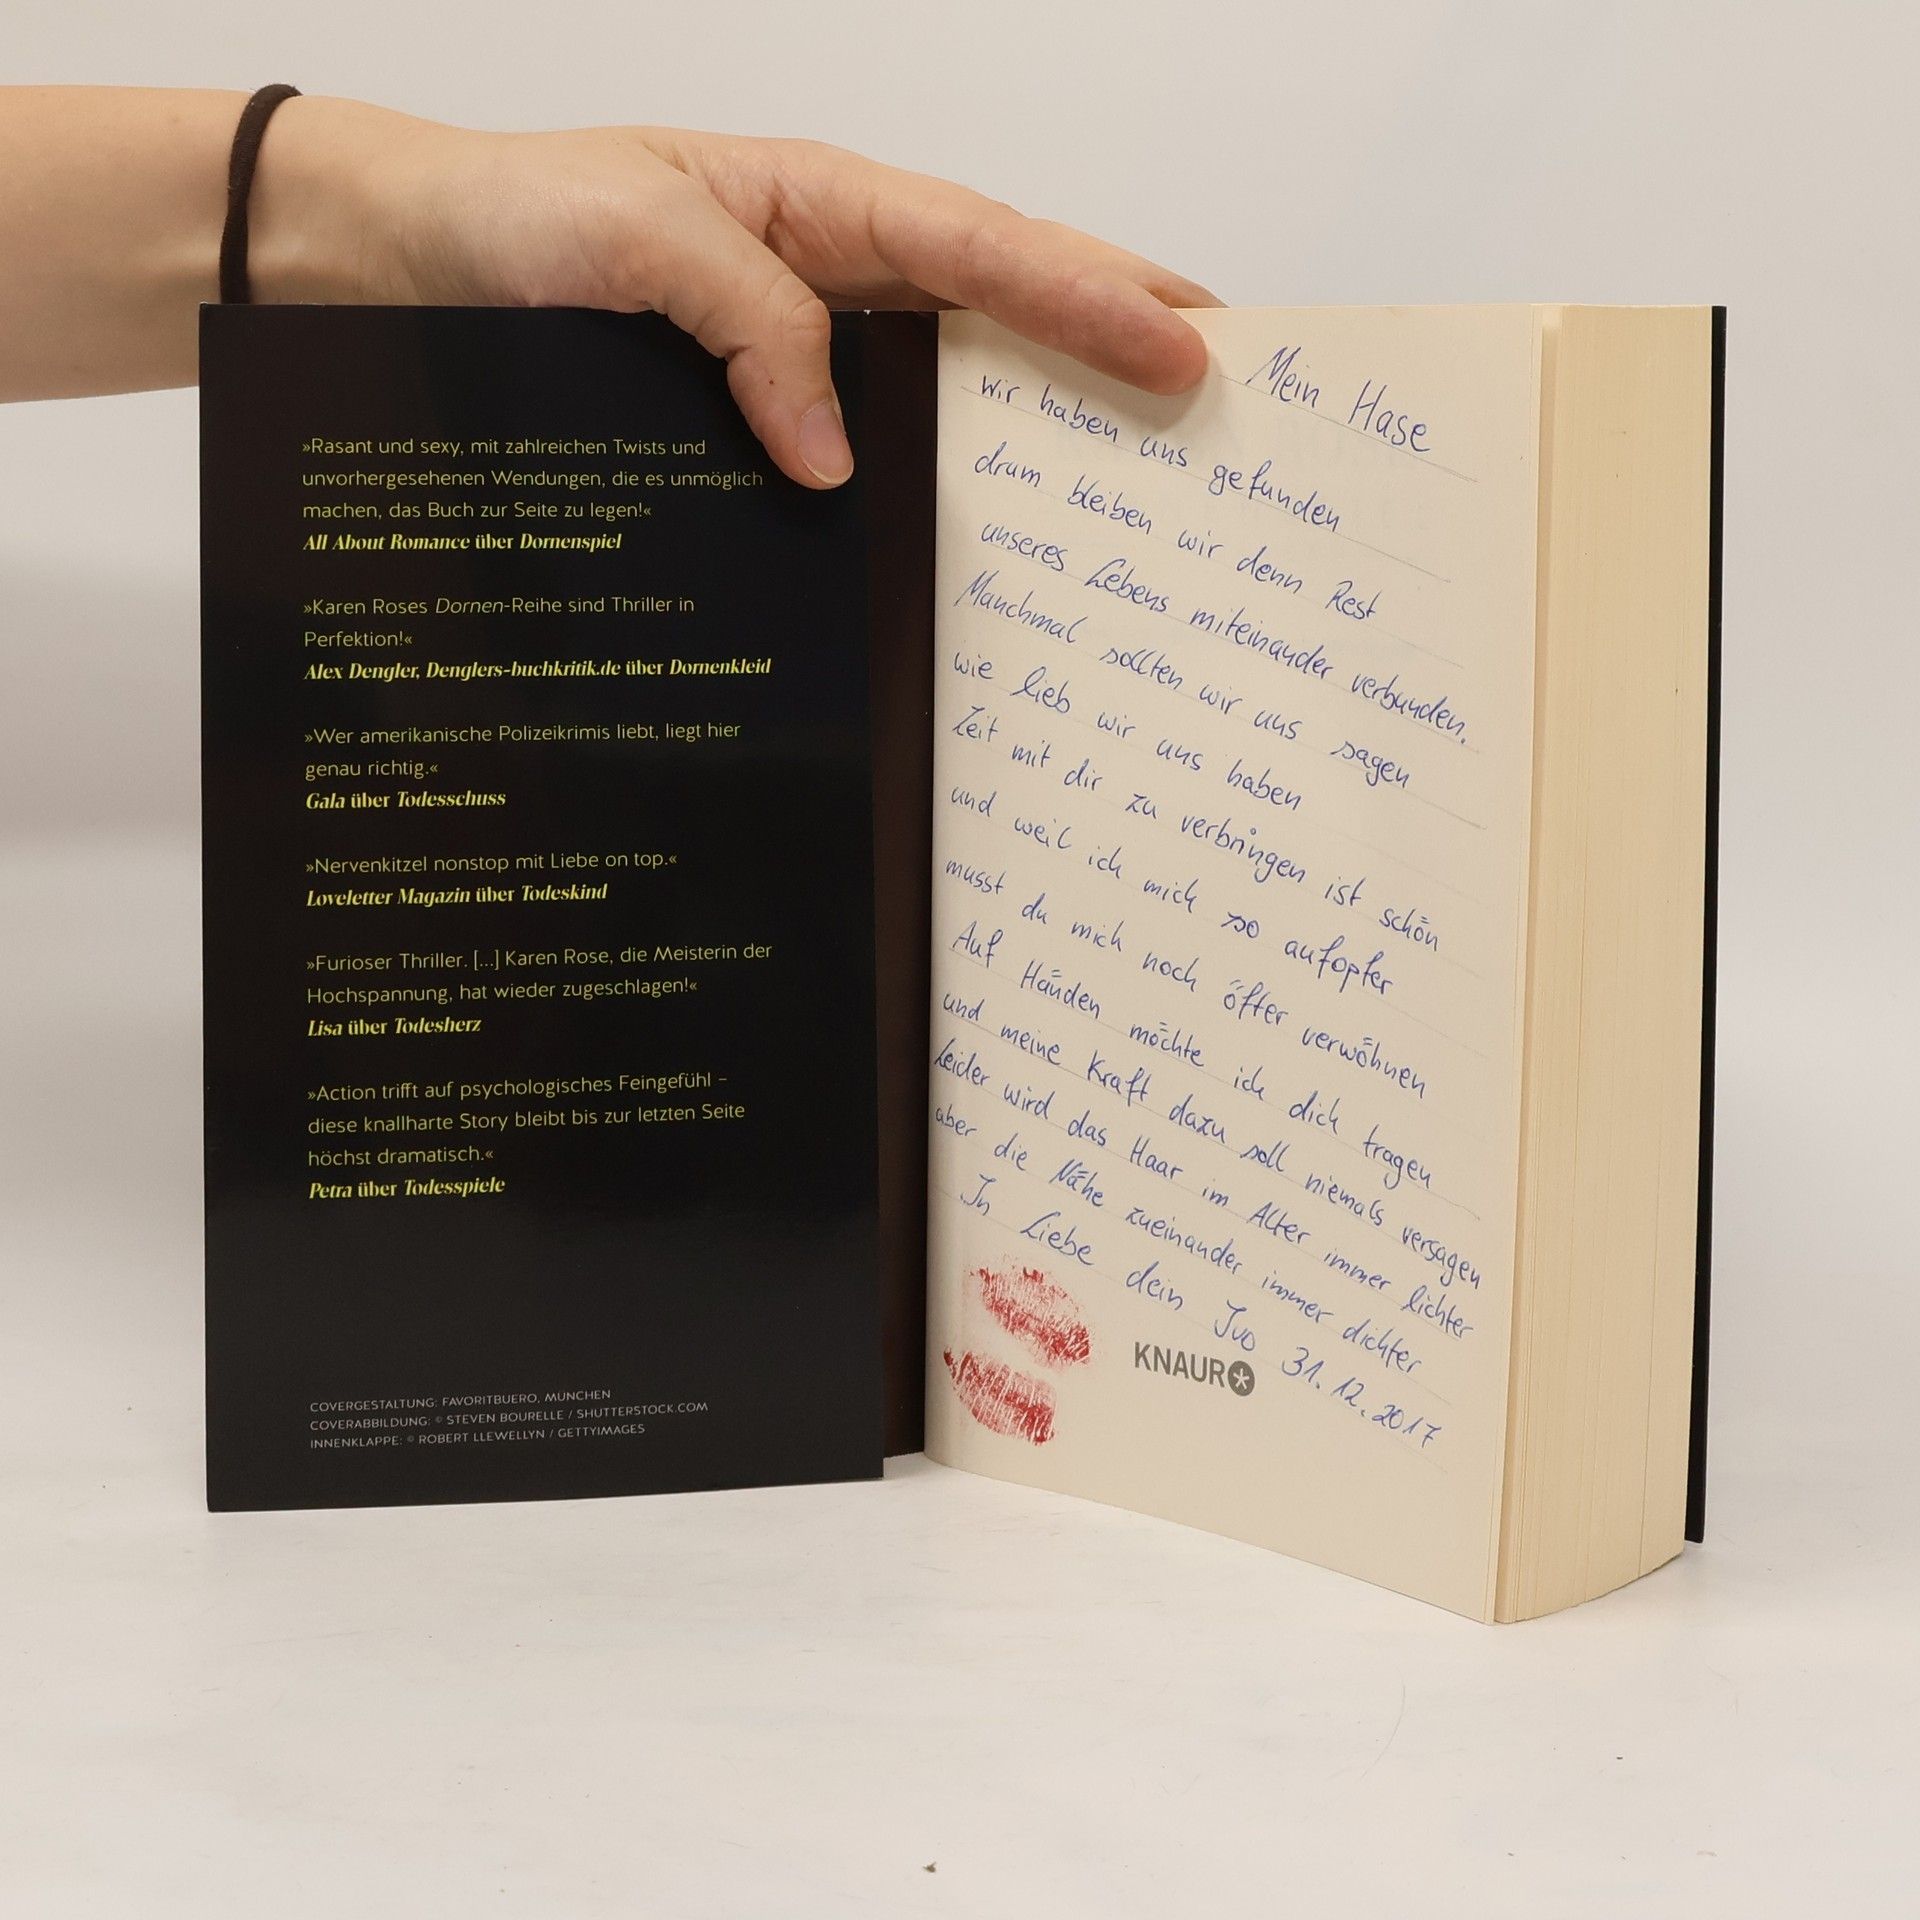 »Rasant und sexy, mit zahlreichen Twists und
unvorhergesehenen Wendungen, die es unmöglich
machen, das Buch zur Seite zu legen!«
All About Romance über Dornenspiel
»Karen Roses Dornen-Reihe sind Thriller in
Perfektion!«
Alex Dengler, Denglers-buchkritik.de über Dornenkleid
»Wer amerikanische Polizeikrimis liebt, liegt hier
genau richtig.«
Gala über Todesschuss
»Nervenkitzel nonstop mit Liebe on top.«
Loveletter Magazin über Todeskind
»Furioser Thriller. [...] Karen Rose, die Meisterin der
Hochspannung, hat wieder zugeschlagen!«
Lisa über Todesherz
»Action trifft auf psychologisches Feingefühl –
diese knallharte Story bleibt bis zur letzten Seite
höchst dramatisch.«
Petra über Todesspiele
COVERGESTALTUNG: FAVORITBUERO, MÜNCHEN
COVERABBILDUNG: © STEVEN BOURELLE / SHUTTERSTOCK.COM
INNENKLAPPE: © ROBERT LLEWELLYN / GETTYIMAGES
Mein Hase
wir haben uns gefunden
drum bleiben wir denn Rest
unseres Lebens miteinander verbunden.
Manchmal sollten wir uns sagen
wie lieb wir uns haben
Zeit mit dir zu verbringen ist schön
und weil ich mich so aufopfer
musst du mich noch öfter verwöhnen
Auf Händen möchte ich dich tragen
und meine Kraft dazu soll niemals versagen
Leider wird das Haar im Alter immer lichter
aber die Nähe zueinander immer dichter
In Liebe dein Ivo 31.12.2017
KNAUR